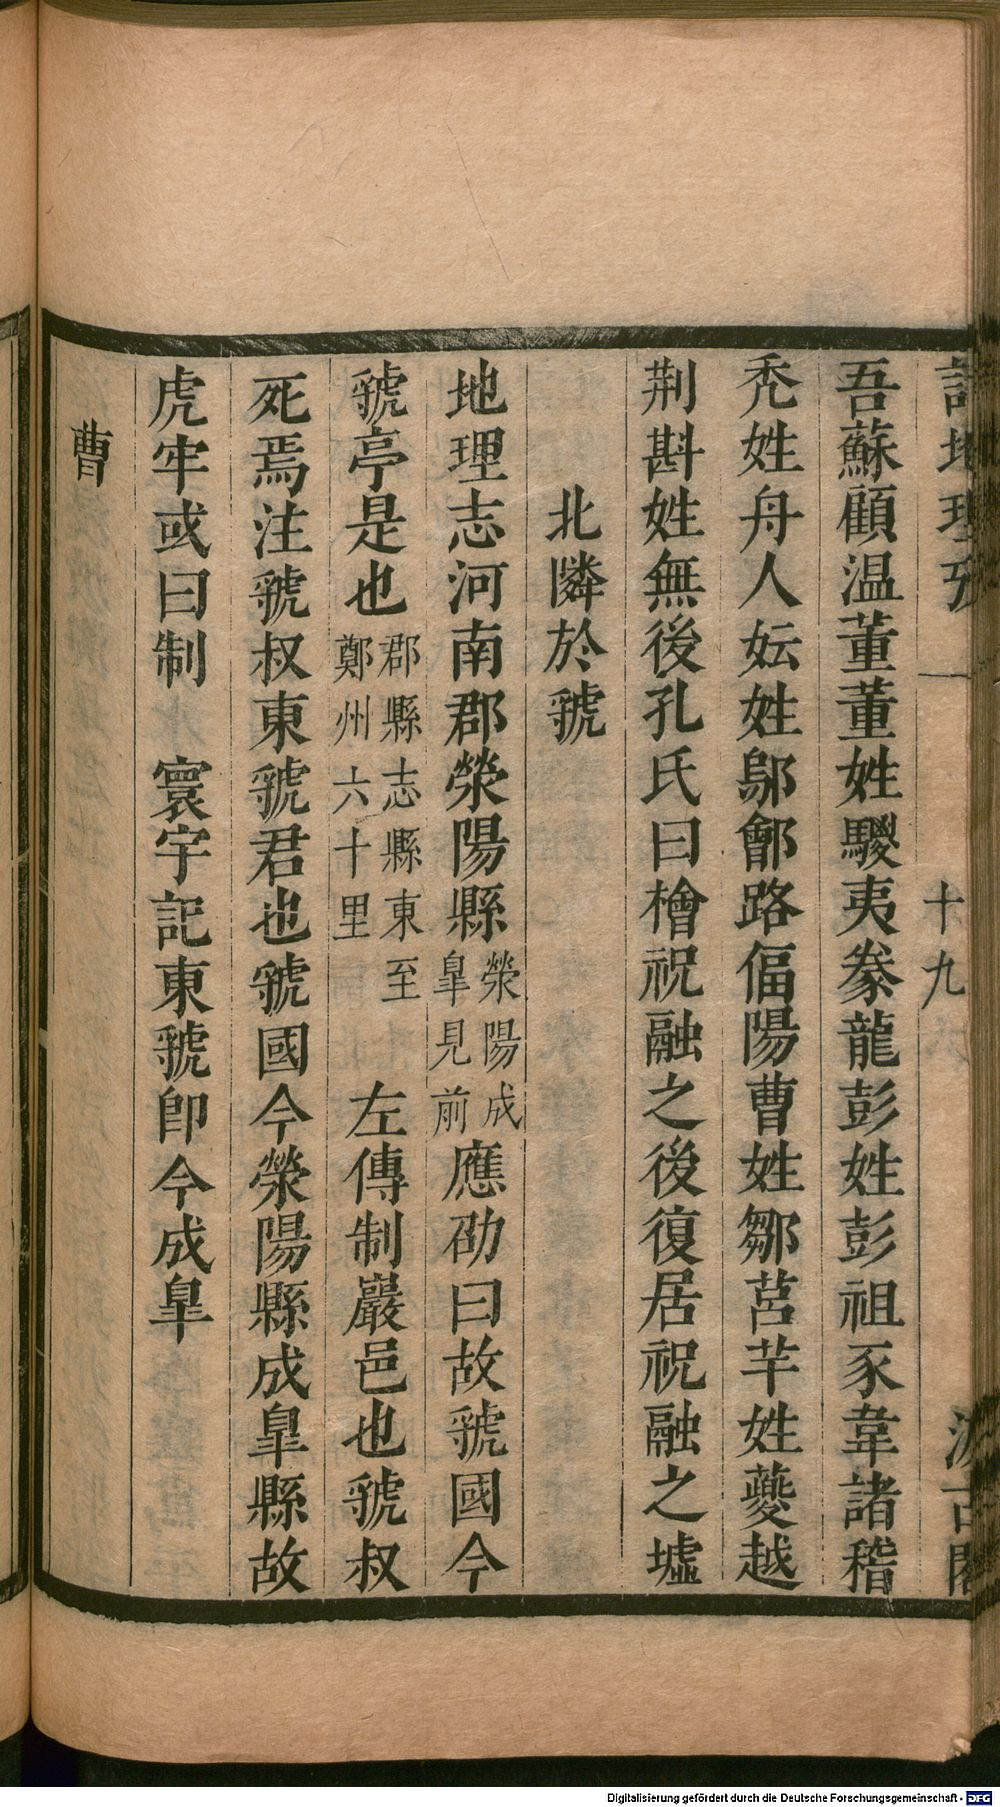 詩地理攷 一 十九 汲古閣
吾蘇顧温董董姓鬷夷豢龍彭姓彭祖豕韋諸稽
禿姓舟人妘姓鄔鄶路偪陽曹姓鄒莒芈姓夔越
荆斟姓無後孔氏曰檜祝融之後復居祝融之墟
北隣於虢
地理志河南郡滎陽縣滎陽成臯見前應劭曰故虢國今
虢亭是也郡縣志縣東至鄭州六十里 左傳制巖邑也虢叔
死焉注虢叔東虢君也虢國今滎陽縣成臯縣故
虎牢或曰制 寰宇記東虢卽今成臯
曹
Digitalisierung gefördert durch die Deutsche Forschungsgemeinschaft - DFG